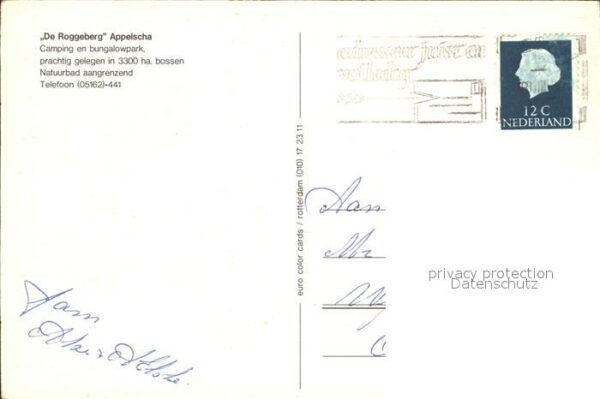 „De Roggeberg" Appelscha
Camping en bungalowpark,
prachtig gelegen in 3300 ha. bossen
Natuurbad aangrenzend
Telefoon (05162)-441
adresseer juist en
volledig
12 C
NEDERLAND
euro color cards / rotterdam (010) 17 23 11
Aan
privacy protection
Datenschutz